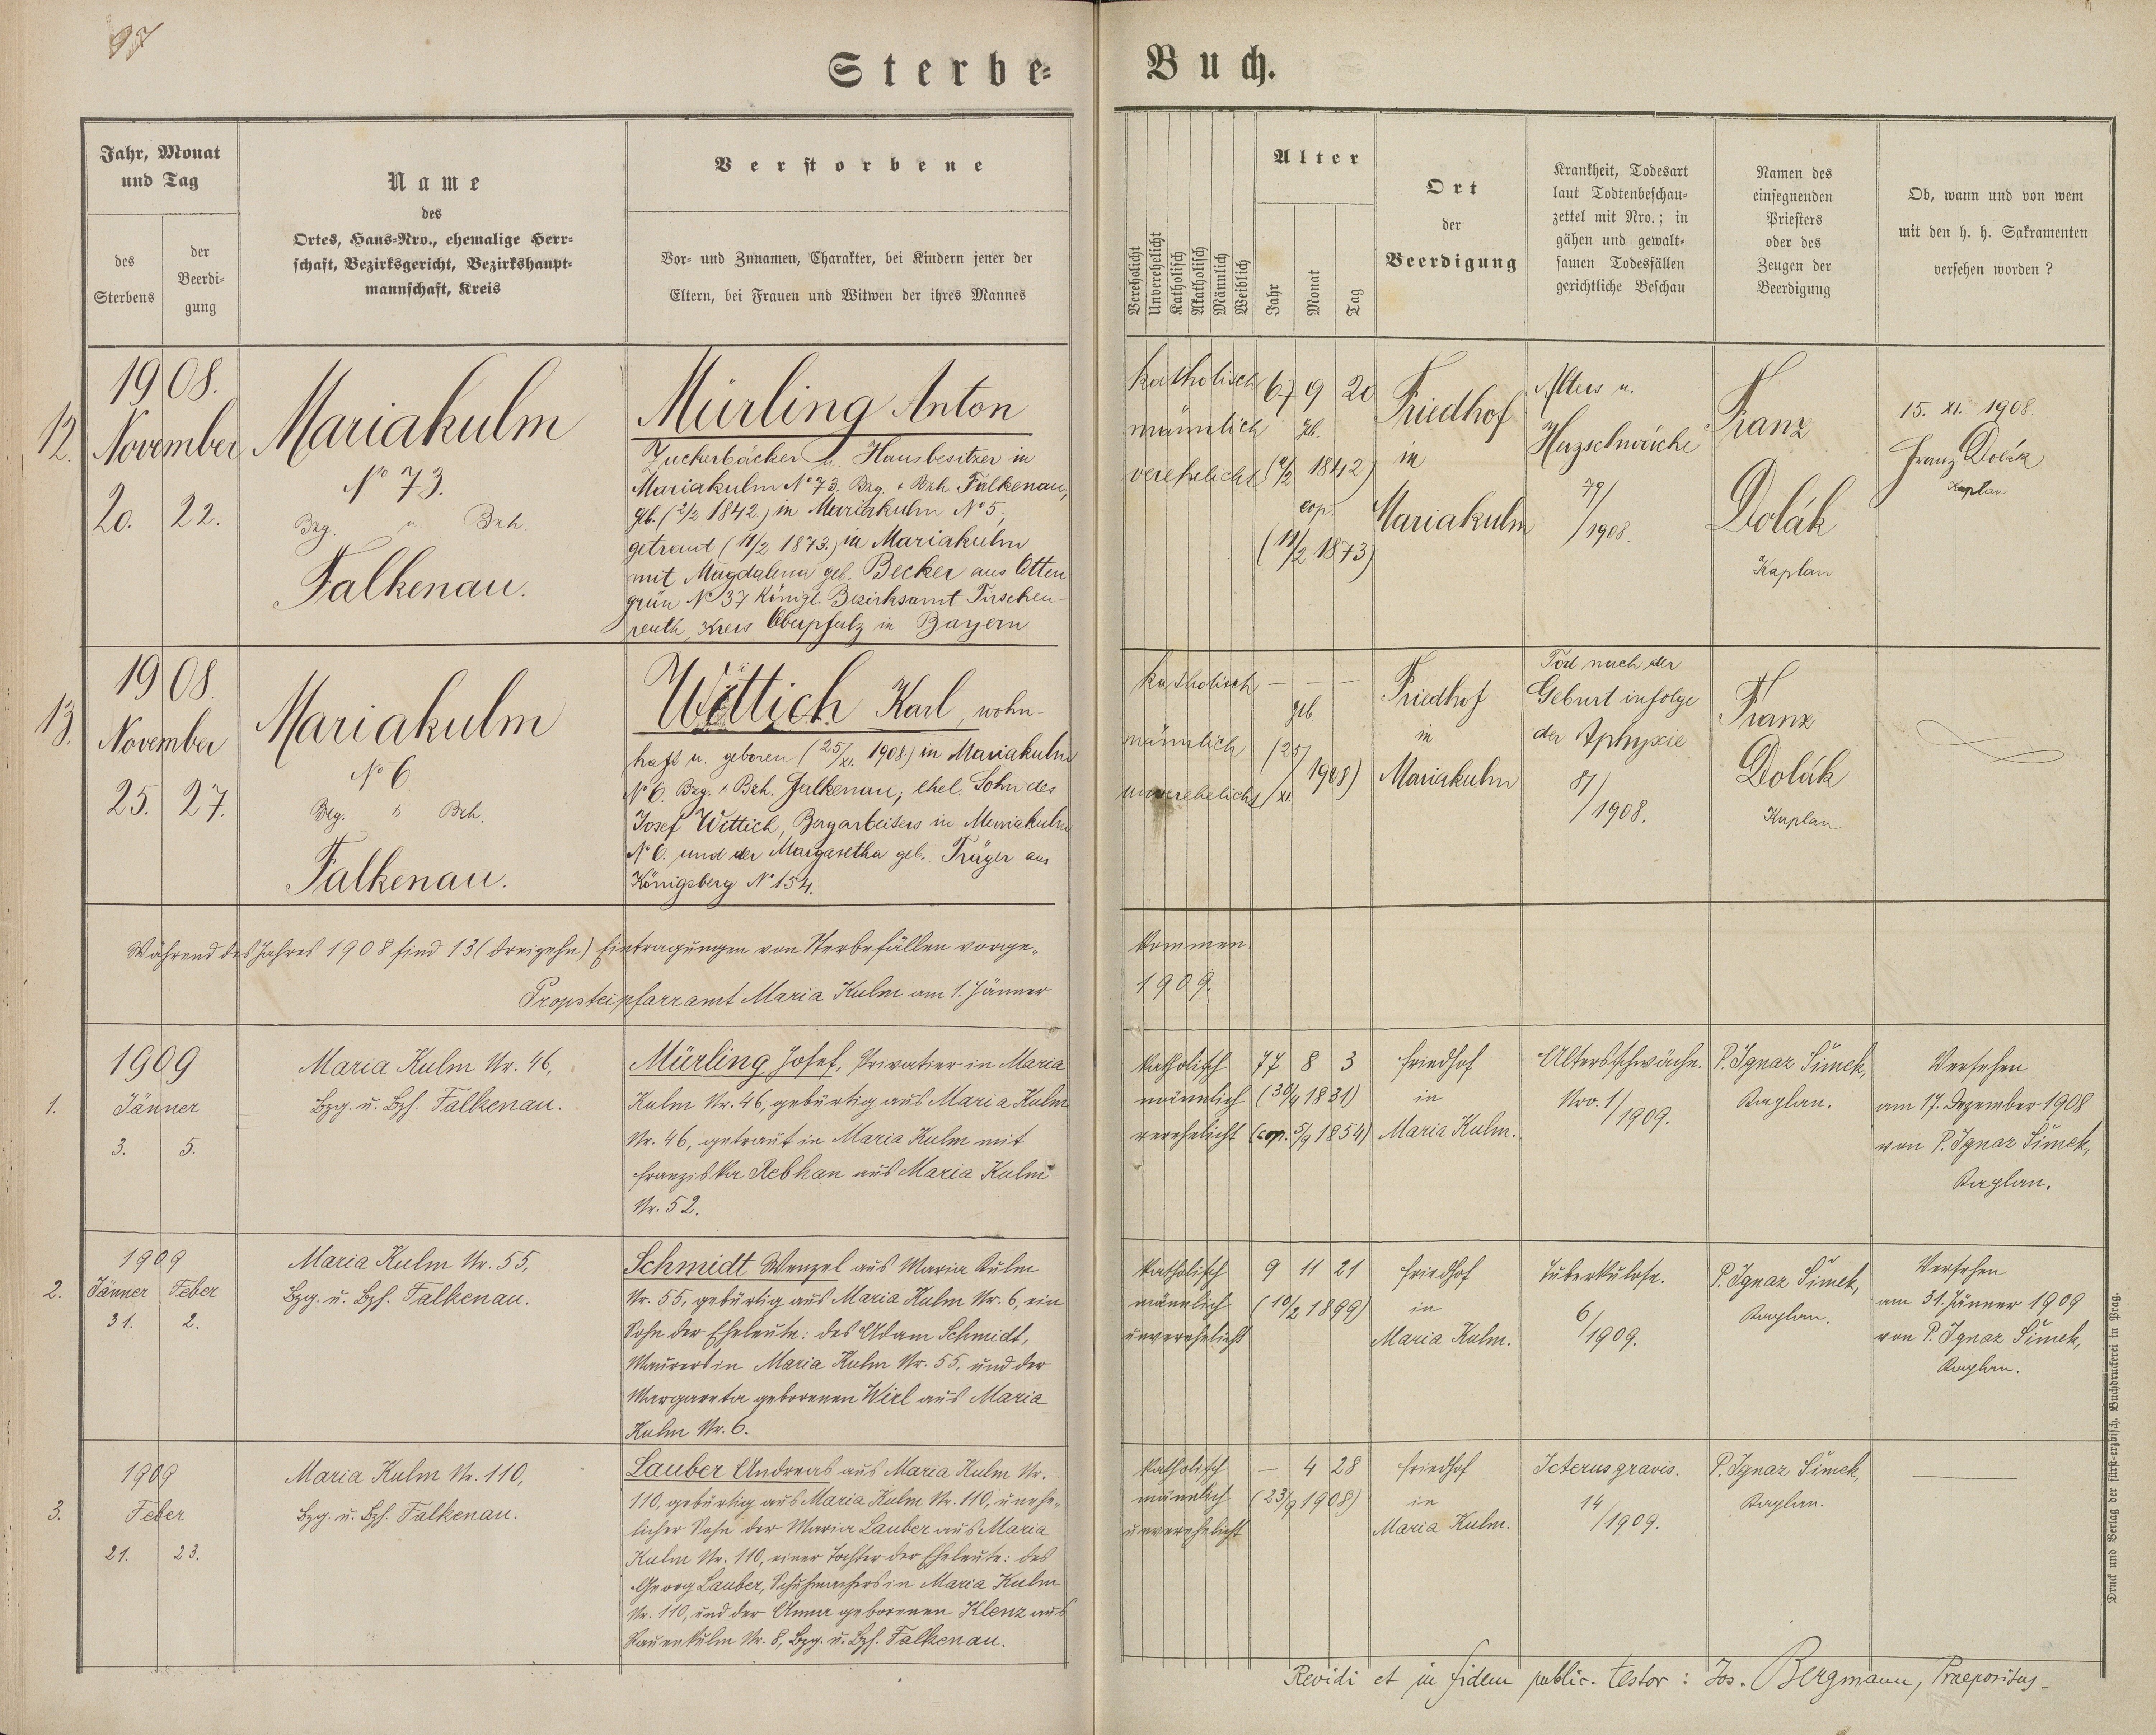 97
Sterbe-
Buch.
Jahr, Monat
und Tag
des
Sterbens
der
Beerdi-
gung
Name
des
Ortes, Haus-Nro., ehemalige Herr-
schaft, Bezirksgericht, Bezirkshaupt-
mannschaft, Kreis
Verstorbene
Vor- und Zunamen, Charakter, bei Kindern jener der
Eltern, bei Frauen und Witwen der ihres Mannes
Verehelicht
Unverehelicht
Katholisch
Akatholisch
Männlich
Weiblich
Alter
Jahr
Monat
Tag
Ort
der
Beerdigung
Krankheit, Todesart
laut Todtenbeschau-
zettel mit Nro.; in
gähen und gewalt-
samen Todesfällen
gerichtliche Beschau
Namen des
einsegnenden
Priesters
oder des
Zeugen der
Beerdigung
Ob, wann und von wem
mit den h. h. Sakramenten
versehen worden ?
12.
1908.
November
20. 22.
Mariakulm
No 73.
Bzg. u. Bzh.
Falkenau.
Mürling Anton
Zuckerbäcker u. Hausbesitzer in
Mariakulm No 73. Bzg. & Bzh. Falkenau,
geb. (2/2 1842.) in Mariakulm No 5,
getraut (11/2 1873.) in Mariakulm
mit Magdalena geb. Becker aus Otten
grün No 37 Königl. Bezirksamt Tirschen-
reuth, Kreis Oberpfalz in Bayern
katholisch
männlich
verehelicht
67 9 20
gb.
(2/2 1842)
cop.
(11/2 1873)
Friedhof
in
Mariakulm
Alters u.
Herzschwäche
79/1908.
Franz
Dolák
Kaplan
15. XI. 1908.
Franz Dolák
Kaplan
13.
1908.
November
25. 27.
Mariakulm
No 6
Bzg. & Bzh.
Falkenau.
Wettich Karl, wohn-
haft u. geboren (25/XI. 1908.) in Mariakulm
No 6. Bzg. & Bzh. Falkenau; ehel. Sohn des
Josef Wettich, Bergarbeiters in Mariakulm
No 6. und der Margaretha geb. Träger aus
Königsberg No 154.
katholisch
männlich
unverehelicht
— — —
geb.
(25/XI 1908)
Friedhof
in
Mariakulm
Tod nach der
Geburt infolge
der Aphyxie
81/1908.
Franz
Dolák
Kaplan
Während des Jahres 1908 sind 13 (dreizehn) Eintragungen von Sterbefällen vorge-
kommen.
Propsteipfarramt Maria Kulm am 1. Jänner
1909.
1.
1909
Jänner
3. 5.
Maria Kulm Nr. 46,
Bzg. u. Bzh. Falkenau.
Mürling Josef, Privatier in Maria
Kulm Nr. 46, gebürtig aus Maria Kulm
Nr. 46, getraut in Maria Kulm mit
Franziska Rebhan aus Maria Kulm
Nr. 52.
katholisch
männlich
verehelicht
77 8 3
(30/4 1831)
(cop. 5/9 1854)
Friedhof
in
Maria Kulm.
Altersschwäche.
Nro. 1/1909.
P. Ignaz Šimek,
Kaplan.
Versehen
am 17. Dezember 1908
von P. Ignaz Šimek,
Kaplan.
2.
1909
Jänner Feber
31. 2.
Maria Kulm Nr. 55,
Bzg. u. Bzh. Falkenau.
Schmidt Wenzel aus Maria Kulm
Nr. 55, gebürtig aus Maria Kulm Nr. 6, ein
Sohn der Eheleute: des Adam Schmidt,
Maurers in Maria Kulm Nr. 55. und der
Margareta geborenen Wirl aus Maria
Kulm Nr. 6.
katholisch
männlich
unverehelicht
9 11 21
(10/2 1899)
Friedhof
in
Maria Kulm.
Tuberkulose.
6/1909.
P. Ignaz Šimek,
Kaplan.
Versehen
am 31. Jänner 1909
von P. Ignaz Šimek,
Kaplan.
3.
1909
Feber
21. 23.
Maria Kulm Nr. 110,
Bzg. u. Bzh. Falkenau.
Lauber Andreas aus Maria Kulm Nr.
110, gebürtig aus Maria Kulm Nr. 110, unehe-
licher Sohn der Maria Lauber aus Maria
Kulm Nr. 110, einer Tochter der Eheleute: des
Georg Lauber, Schuhmachers in Maria Kulm
Nr. 110, und der Anna geborenen Klenz aus
Rauenkulm Nr. 8, Bzg. u. Bzh. Falkenau.
katholisch
männlich
unverehelicht
— 4 28
(23/9 1908)
Friedhof
in
Maria Kulm.
Icterus gravis.
14/1909.
P. Ignaz Šimek,
Kaplan.
Revidi et in fidem public. testor: Jos. Bergmann, Praepositus.
Druck und Verlag der fürst-erzbisch. Buchdruckerei in Prag.